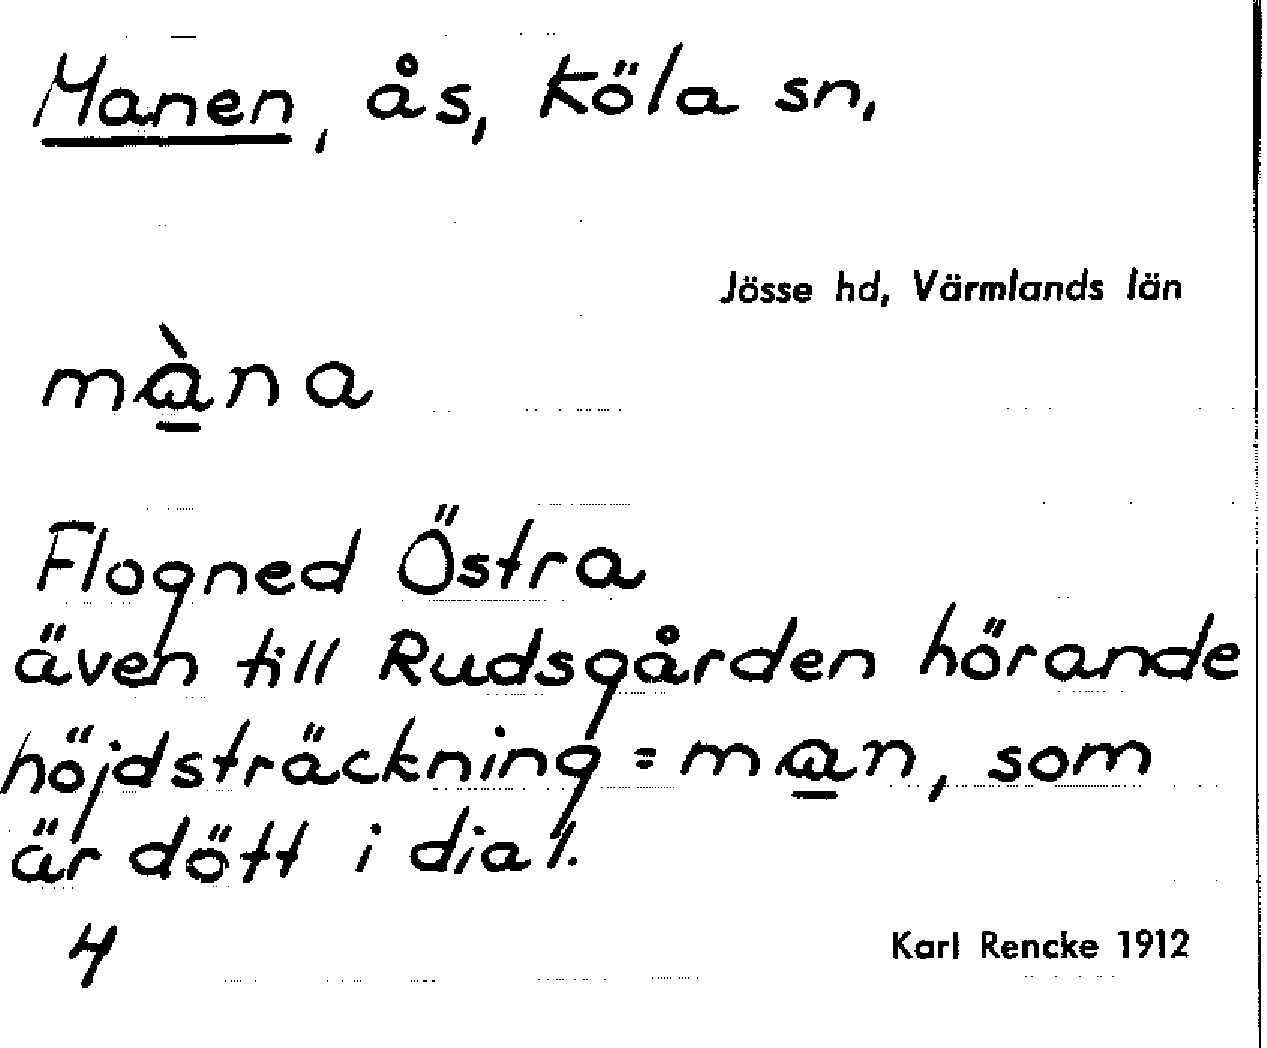 Manen, ås, Köla sn,
Jösse hd, Värmlands län
màna
Flogned Östra
även till Rudsgården hörande
höjdsträckning = man, som
är dött i dial.
4
Karl Rencke 1912